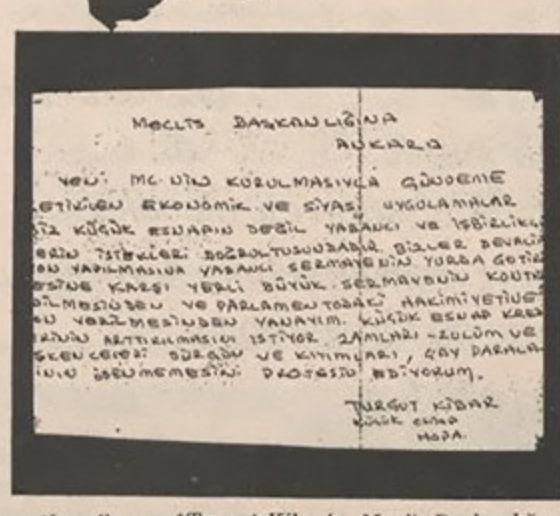 MECLİS BAŞKANLIĞINA
ANKARA
YENİ MC.NİN KURULMASIYLA GÜNDEME
ETİRİLEN EKONOMİK VE SİYASİ UYGULAMALAR
KÜÇÜK ESNAFIN DEĞİL YABANCI VE İŞBİRLİKÇİ
ERİN İSTEKLERİ DOĞRULTUSUNDADIR BİZLER DEVALÜ
ON YAPILMASINA YABANCI SERMAYENİN YURDA GETİR
ESİNE KARŞI YERLİ BÜYÜK SERMAYENİN KONTR
DİLMESİNDEN VE PARLAMENTODAKİ HAKİMİYETİNE
ON VERİLMESİNDEN YANAYIM. KÜÇÜK ESNAF KRED
ERİNİN ARTTIRILMASINI İSTİYOR ZAMLARI - ZULÜM VE
ŞKENCELERİ SÜRGÜN VE KIYIMLARI, ÇAY PARALA
ININ ÖDENMEMESİNİ PROTESTO EDİYORUM.
TURGUT KİBAR
KÜÇÜK ESNAF
HOPA.